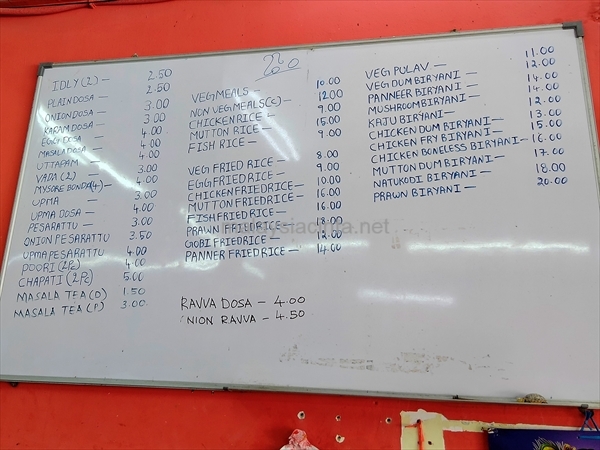 IDLY (2) — 2.50
PLAIN DOSA — 2.50
ONION DOSA — 3.00
KARAM DOSA — 3.00
EGG DOSA — 4.00
MASALA DOSA — 4.00
UTTAPAM — 4.00
VADA (2) — 3.00
MYSORE BONDA (4) — 4.00
UPMA — 3.00
UPMA DOSA — 4.00
PESARATTU — 3.00
ONION PESARATTU 3.50
UPMA PESARATTU 4.00
POORI (2Pc) — 4.00
CHAPATI (2Pc) — 5.00
MASALA TEA (O) — 1.50
MASALA TEA (P) — 3.00
VEG MEALS — 10.00
NON VEG MEALS (C) — 12.00
CHICKEN RICE — 9.00
MUTTON RICE — 15.00
FISH RICE — 9.00
VEG FRIED RICE — 8.00
EGG FRIED RICE — 9.00
CHICKEN FRIED RICE — 10.00
MUTTON FRIED RICE — 16.00
FISH FRIED RICE — 16.00
PRAWN FRIED RICE — 18.00
GOBI FRIED RICE — 12.00
PANNER FRIED RICE — 14.00
RAVVA DOSA — 4.00
ONION RAVVA — 4.50
VEG PULAV — 11.00
VEG DUM BIRYANI — 12.00
PANNEER BIRYANI — 14.00
MUSHROOM BIRYANI — 14.00
KAJU BIRYANI — 12.00
CHICKEN DUM BIRYANI — 13.00
CHICKEN FRY BIRYANI — 15.00
CHICKEN BONELESS BIRYANI — 16.00
MUTTON DUM BIRYANI — 17.00
NATUKODI BIRYANI — 18.00
PRAWN BIRYANI — 20.00